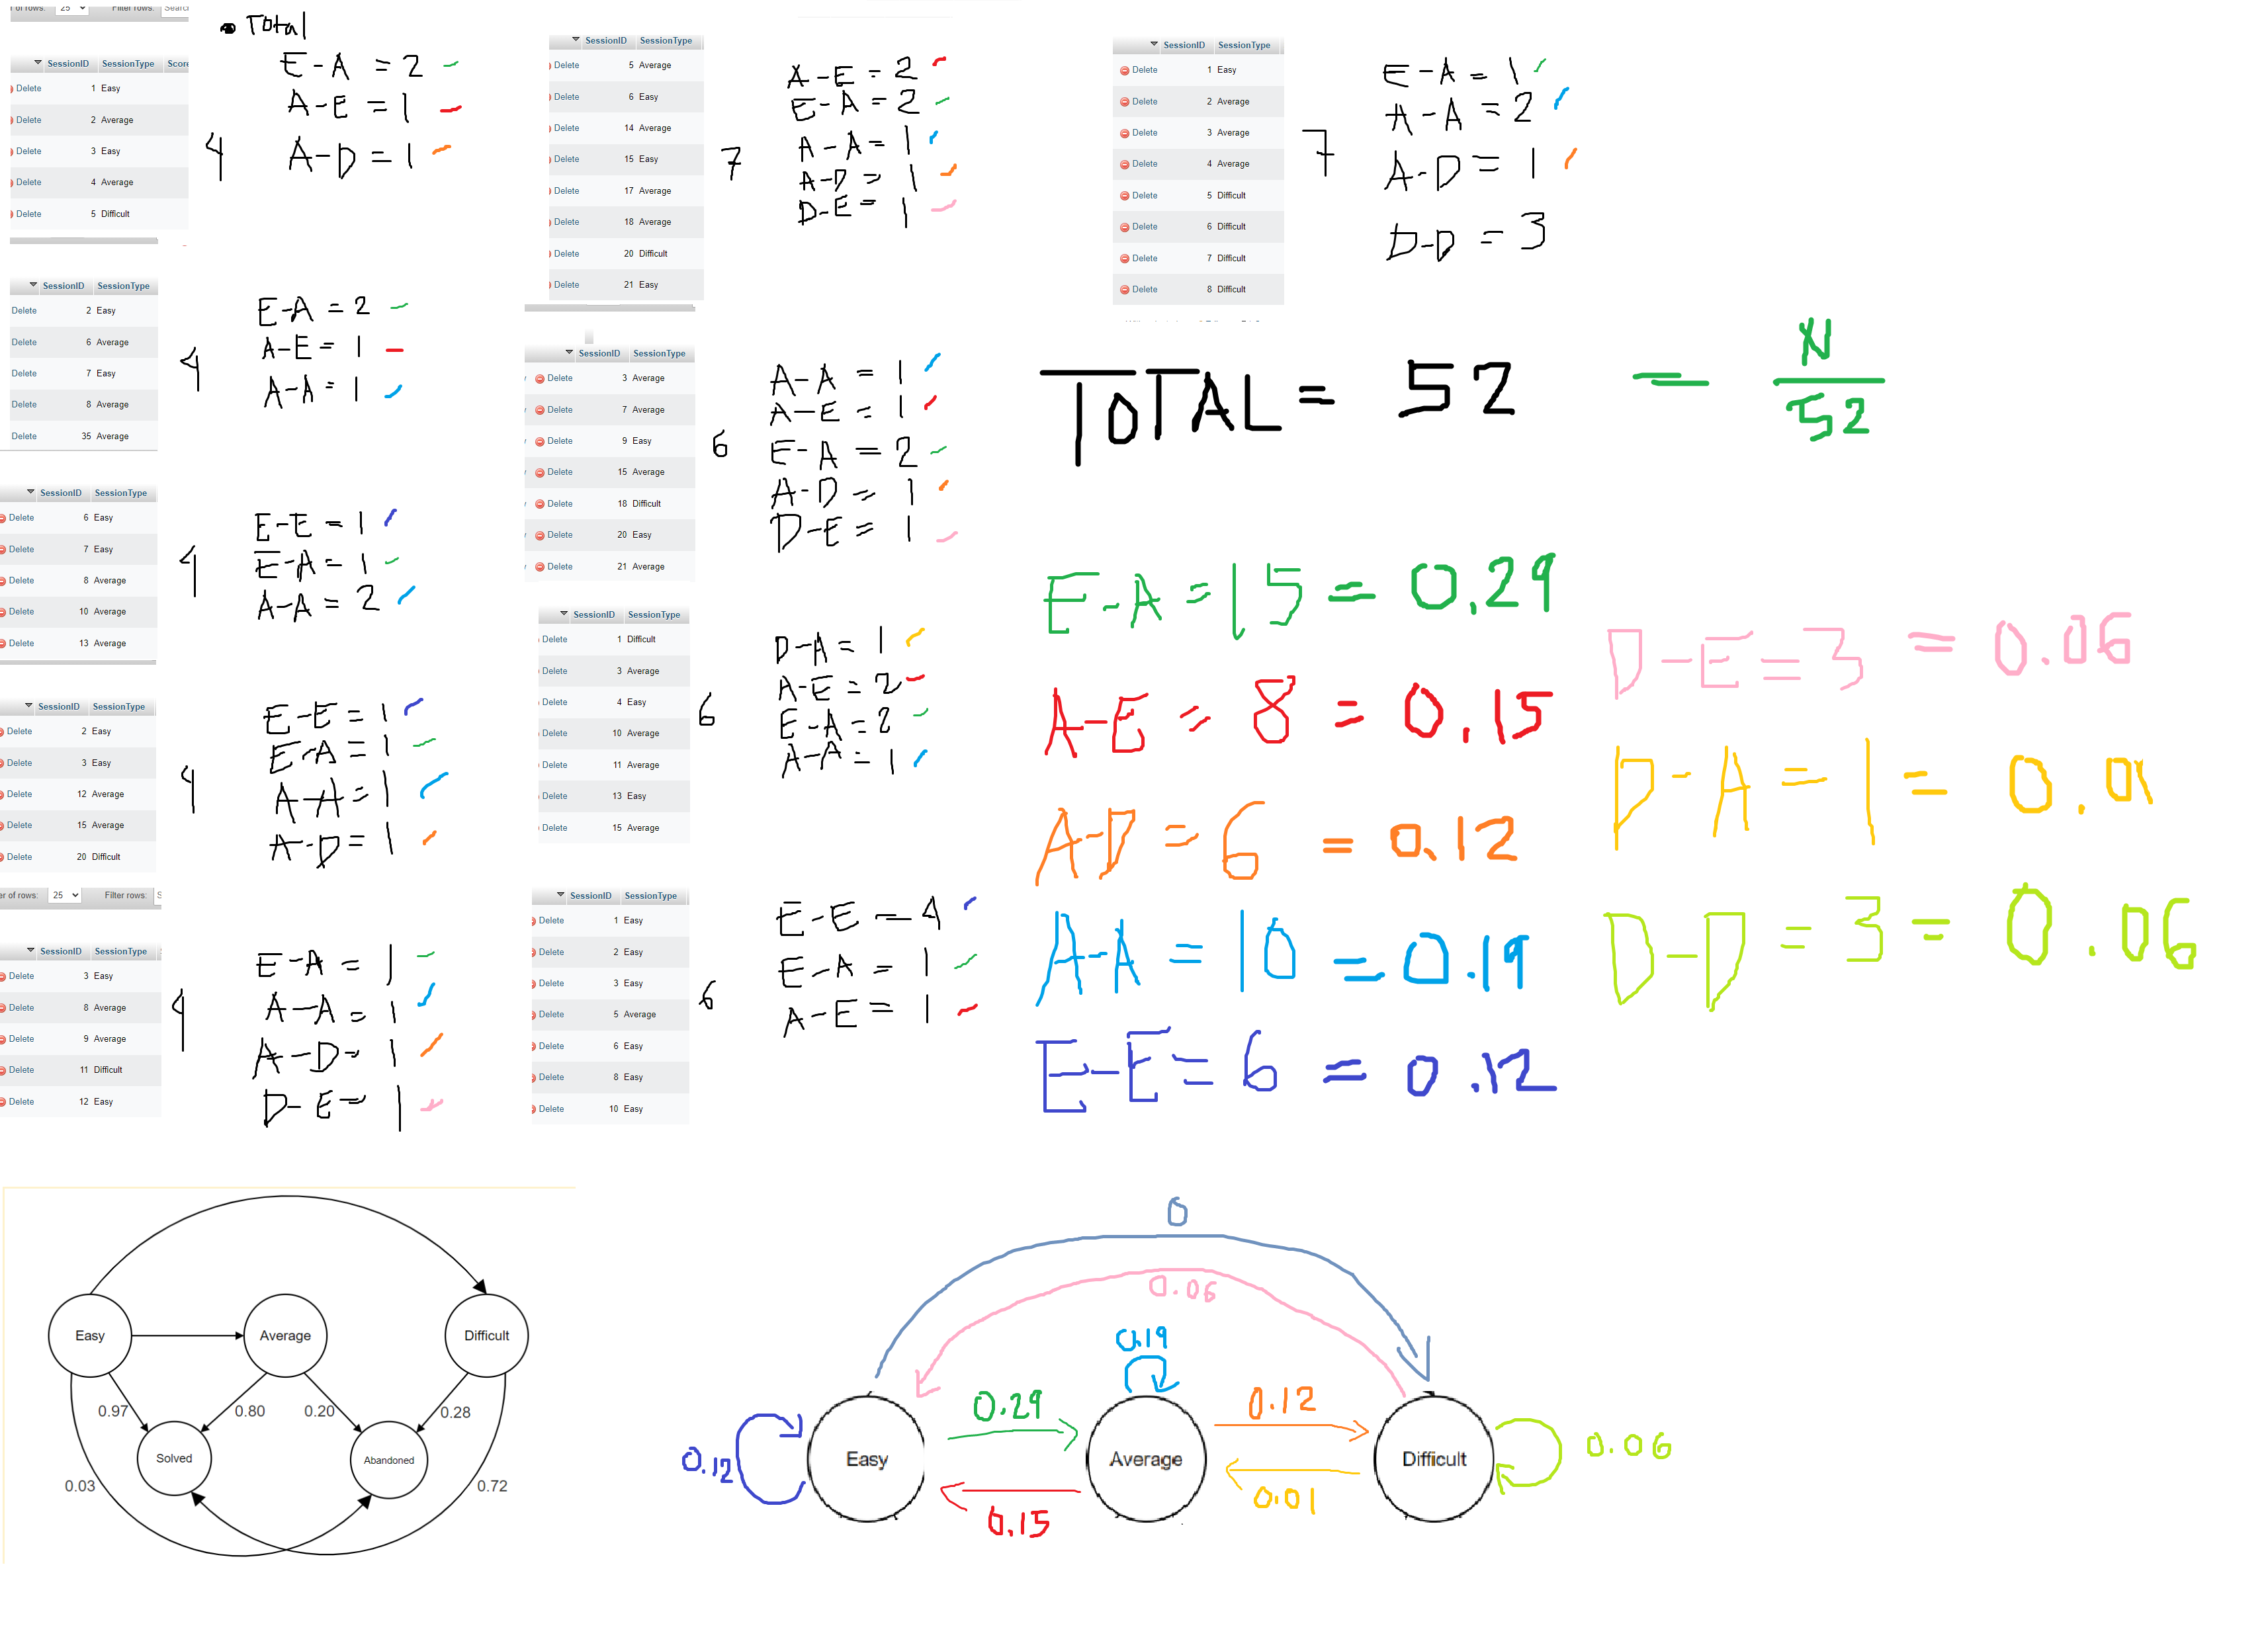 of rows: 25 Filter rows: Searc
• Total
SessionID SessionType Score
Delete 1 Easy
Delete 2 Average
Delete 3 Easy
Delete 4 Average
Delete 5 Difficult
4
E-A = 2
A-E = 1
A-D = 1
SessionID SessionType
Delete 2 Easy
Delete 6 Average
Delete 7 Easy
Delete 8 Average
Delete 35 Average
4
E-A = 2
A-E = 1
A-A = 1
SessionID SessionType
Delete 6 Easy
Delete 7 Easy
Delete 8 Average
Delete 10 Average
Delete 13 Average
4
E-E = 1
E-A = 1
A-A = 2
SessionID SessionType
Delete 2 Easy
Delete 3 Easy
Delete 12 Average
Delete 15 Average
Delete 20 Difficult
4
E-E = 1
E-A = 1
A-A = 1
A-D = 1
er of rows: 25 Filter rows: S
SessionID SessionType
Delete 3 Easy
Delete 8 Average
Delete 9 Average
Delete 11 Difficult
Delete 12 Easy
4
E-A = 1
A-A = 1
A-D = 1
D-E = 1
SessionID SessionType
Delete 5 Average
Delete 6 Easy
Delete 14 Average
Delete 15 Easy
Delete 17 Average
Delete 18 Average
Delete 20 Difficult
Delete 21 Easy
7
A-E = 2
E-A = 2
A-A = 1
A-D = 1
D-E = 1
SessionID SessionType
Delete 3 Average
Delete 7 Average
Delete 9 Easy
Delete 15 Average
Delete 18 Difficult
Delete 20 Easy
Delete 21 Average
6
A-A = 1
A-E = 1
E-A = 2
A-D = 1
D-E = 1
SessionID SessionType
Delete 1 Difficult
Delete 3 Average
Delete 4 Easy
Delete 10 Average
Delete 11 Average
Delete 13 Easy
Delete 15 Average
6
D-A = 1
A-E = 2
E-A = 2
A-A = 1
SessionID SessionType
Delete 1 Easy
Delete 2 Easy
Delete 3 Easy
Delete 5 Average
Delete 6 Easy
Delete 8 Easy
Delete 10 Easy
6
E-E = 4
E-A = 1
A-E = 1
SessionID SessionType
Delete 1 Easy
Delete 2 Average
Delete 3 Average
Delete 4 Average
Delete 5 Difficult
Delete 6 Difficult
Delete 7 Difficult
Delete 8 Difficult
7
E-A = 1
A-A = 2
A-D = 1
D-D = 3
TOTAL = 52 = N
52
E-A = 15 = 0.29
A-E = 8 = 0.15
A-D = 6 = 0.12
A-A = 10 = 0.19
E-E = 6 = 0.12
D-E = 3 = 0.06
D-A = 1 = 0.01
D-D = 3 = 0.06
Easy Average Difficult
0.97 0.80 0.20 0.28
Solved Abandoned
0.03 0.72
0
0.06
0.19
0.29 0.12
0.12 Easy Average Difficult 0.06
0.15 0.01